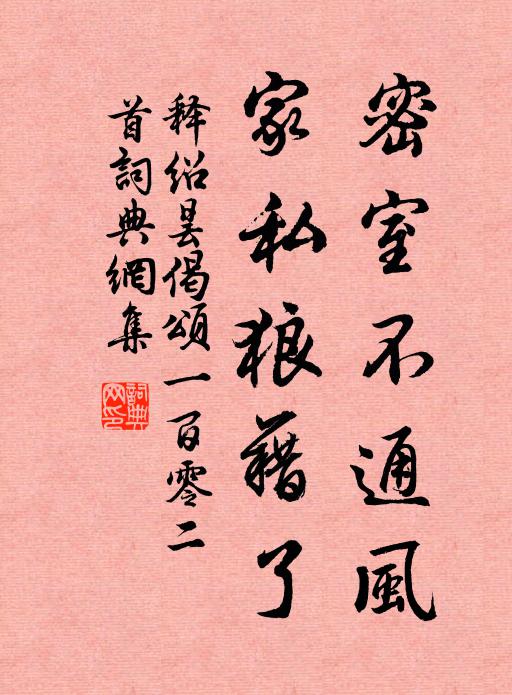 密室不通風
家私狼藉了
释绍昙偈頌一百零二
首詞典網集
詞典
网印